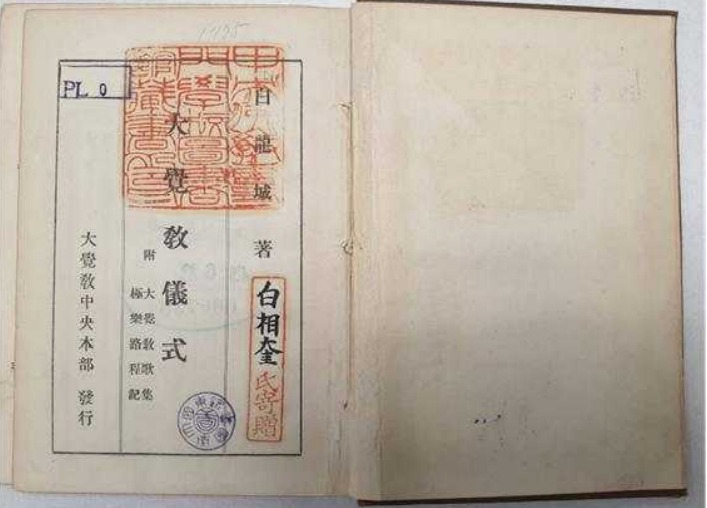 白龍城 著
白相奎氏寄贈
大覺敎儀式
附 大覺敎歌集
極樂路程記
大覺敎中央本部 發行
PL 0